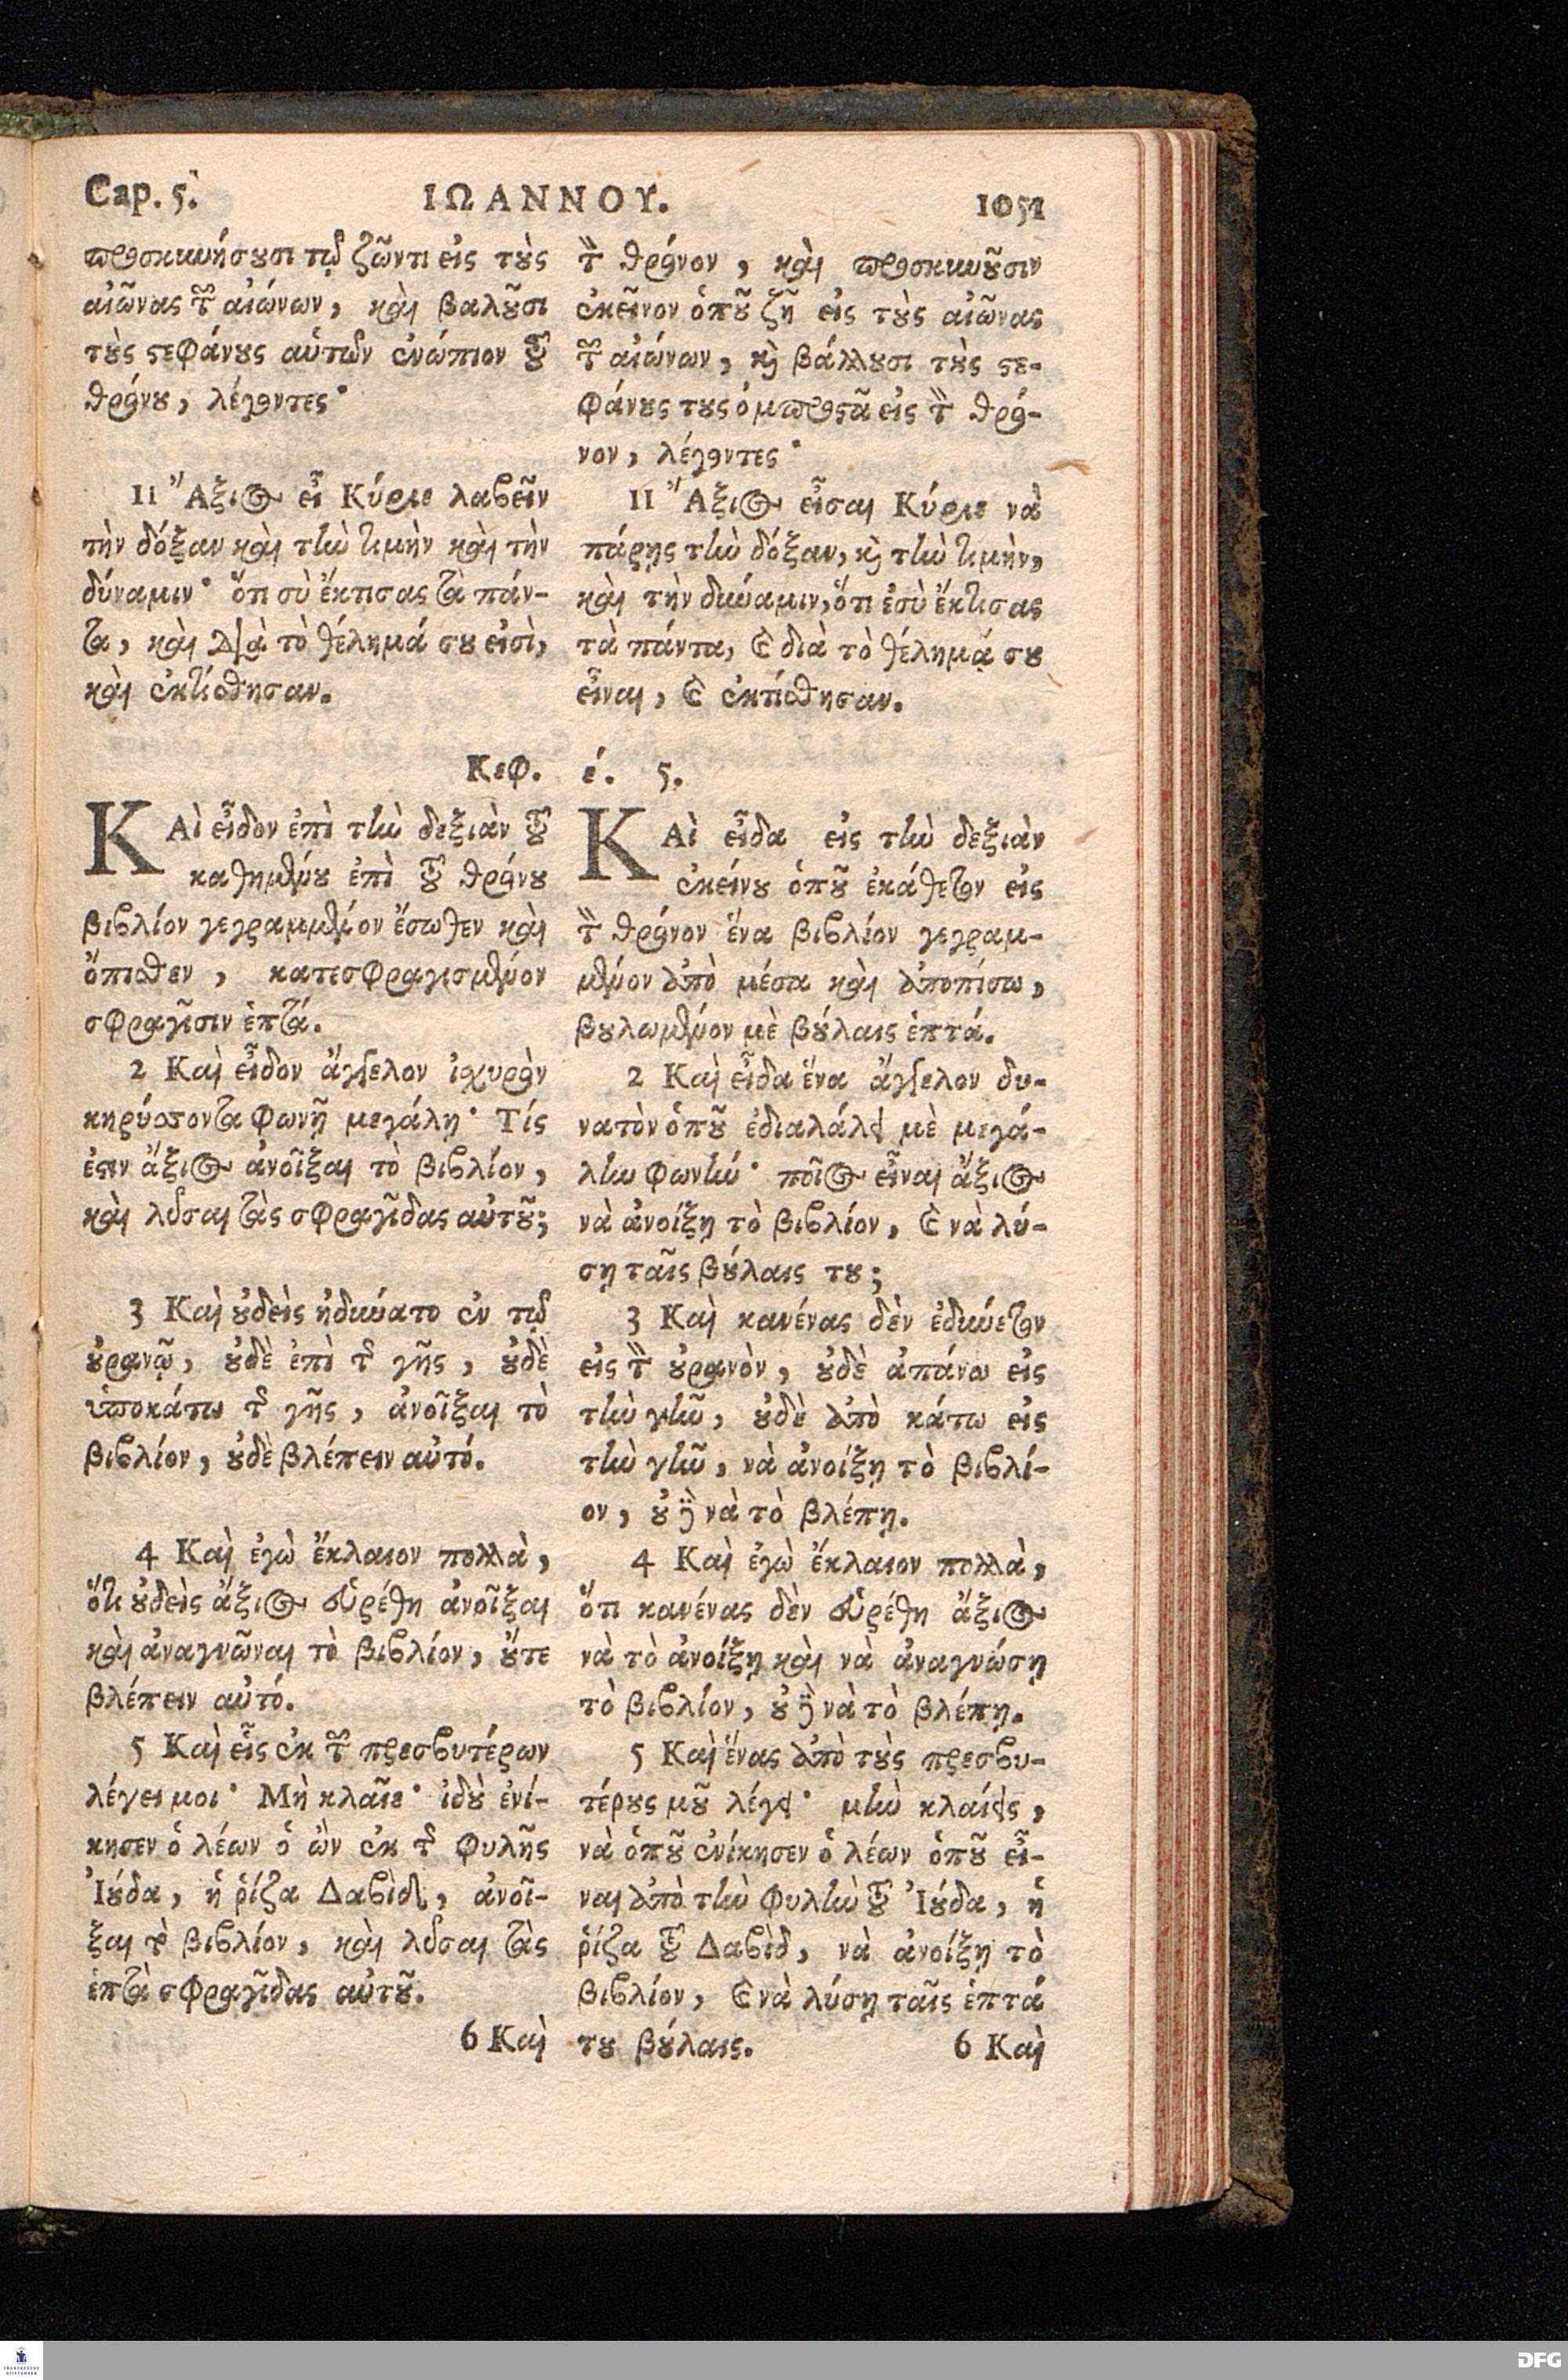 Cap. 5.
ΙΩΑΝΝΟΥ.
1051
προσκυνήσουσι τῷ ζῶντι εἰς τοὺς
αἰῶνας τῶν αἰώνων, καὶ βαλοῦσι
τοὺς στεφάνους αὑτῶν ἐνώπιον τοῦ
θρόνου, λέγοντες·
11 Ἄξιος εἶ Κύριε λαβεῖν
τὴν δόξαν καὶ τὴν τιμὴν καὶ τὴν
δύναμιν· ὅτι σὺ ἔκτισας τὰ πάν-
τα, καὶ διὰ τὸ θέλημά σου εἰσὶ,
καὶ ἐκτίσθησαν.
Κεφ. έ. 5.
ΚΑὶ εἶδον ἐπὶ τὴν δεξιὰν τοῦ
καθημένου ἐπὶ τοῦ θρόνου
βιβλίον γεγραμμένον ἔσωθεν καὶ
ὄπισθεν, κατεσφραγισμένον
σφραγῖσιν ἑπτά.
2 Καὶ εἶδον ἄγγελον ἰσχυρὸν
κηρύσσοντα φωνῇ μεγάλῃ· Τίς
ἐστιν ἄξιος ἀνοῖξαι τὸ βιβλίον,
καὶ λῦσαι τὰς σφραγῖδας αὐτοῦ;
3 Καὶ οὐδεὶς ἠδύνατο ἐν τῷ
οὐρανῷ, οὐδὲ ἐπὶ τῆς γῆς, οὐδὲ
ὑποκάτω τῆς γῆς, ἀνοῖξαι τὸ
βιβλίον, οὐδὲ βλέπειν αὐτό.
4 Καὶ ἐγὼ ἔκλαιον πολλὰ,
ὅτι οὐδεὶς ἄξιος εὑρέθη ἀνοῖξαι
καὶ ἀναγνῶναι τὸ βιβλίον, οὔτε
βλέπειν αὐτό.
5 Καὶ εἷς ἐκ τῶν πρεσβυτέρων
λέγει μοι· Μὴ κλαῖε· ἰδοὺ ἐνί-
κησεν ὁ λέων ὁ ὢν ἐκ τῆς φυλῆς
Ἰούδα, ἡ ῥίζα Δαβὶδ, ἀνοῖ-
ξαι τὸ βιβλίον, καὶ λῦσαι τὰς
ἑπτὰ σφραγῖδας αὐτοῦ.
6 Καὶ
τὸν θρόνον, καὶ προσκυνοῦσιν
ἐκεῖνον ὁποῦ ζῇ εἰς τοὺς αἰῶνας
τῶν αἰώνων, καὶ βάλλουσι τοὺς στε-
φάνους τους ὀμπροστᾶ εἰς τὸν θρό-
νον, λέγοντες·
11 Ἄξιος εἶσαι Κύριε νὰ
πάρῃς τὴν δόξαν, καὶ τὴν τιμὴν,
καὶ τὴν δύναμιν, ὅτι ἐσὺ ἔκτισας
τὰ πάντα, καὶ διὰ τὸ θέλημά σου
εἶναι, καὶ ἐκτίσθησαν.
ΚΑὶ εἶδα εἰς τὴν δεξιὰν
ἐκείνου ὁποῦ ἐκάθετον εἰς
τὸν θρόνον ἕνα βιβλίον γεγραμ-
μένον ἀπὸ μέσα καὶ ἀποπίσω,
βουλωμένον μὲ βούλαις ἑπτά.
2 Καὶ εἶδα ἕνα ἄγγελον δυ-
νατὸν ὁποῦ ἐδιαλάλει μὲ μεγά-
λην φωνήν· ποῖος εἶναι ἄξιος
νὰ ἀνοίξῃ τὸ βιβλίον, καὶ νὰ λύ-
σῃ ταῖς βούλαις του;
3 Καὶ κανένας δὲν ἐδύνετον
εἰς τὸν οὐρανὸν, οὐδὲ ἀπάνω εἰς
τὴν γῆν, οὐδὲ ἀπὸ κάτω εἰς
τὴν γῆν, νὰ ἀνοίξῃ τὸ βιβλί-
ον, οὐδὲ νὰ τὸ βλέπῃ.
4 Καὶ ἐγὼ ἔκλαιον πολλὰ,
ὅτι κανένας δὲν εὑρέθη ἄξιος
νὰ τὸ ἀνοίξῃ καὶ νὰ ἀναγνώσῃ
τὸ βιβλίον, οὐδὲ νὰ τὸ βλέπῃ.
5 Καὶ ἕνας ἀπὸ τοὺς πρεσβυ-
τέρους μοῦ λέγει· μὴν κλαίεις,
νὰ ὁποῦ ἐνίκησεν ὁ λέων ὁποῦ εἶ-
ναι ἀπὸ τὴν φυλὴν τοῦ Ἰούδα, ἡ
ῥίζα τοῦ Δαβὶδ, νὰ ἀνοίξῃ τὸ
βιβλίον, καὶ νὰ λύσῃ ταῖς ἑπτά
του βούλαις.
6 Καὶ
FRANCKESCHE
STIFTUNGEN
DFG